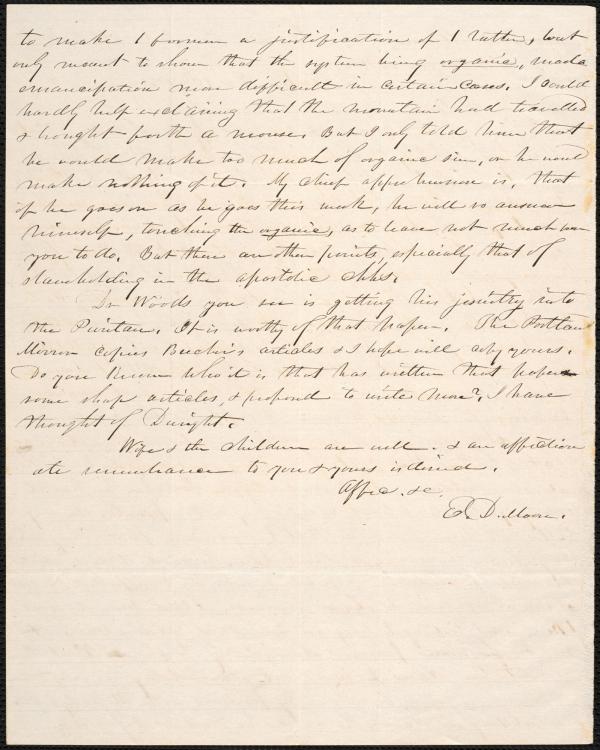 to make 1 a justification of 1 latter, but
only meant to show that the system being organic, made
emancipation more difficult in certain cases. I could
hardly help exclaiming that the mountain had travelled
& brought forth a mouse. But I only told him that
he would make too much of organic sin, or he would
make nothing of it. My chief apprehension is, that
if he goes on as he goes this week, he will so answer
himself, touching the organic, as to leave not much for
you to do. But there are other points, especially that of
slaveholding in the apostolic chhs.
Dr Woods you see is getting his jesuitry into
the Puritan. It is worthy of that paper. The Portland
Mirror copies Beecher's articles & I hope will copy yours.
Do you know who it is that has written that paper
some sharp articles, & proposed to write more? I have
thought of Dwight.
Wife & the children are well. & an affection
ate remembrance to you & yours is desired.
Affec. &c.
E. D. Moore.